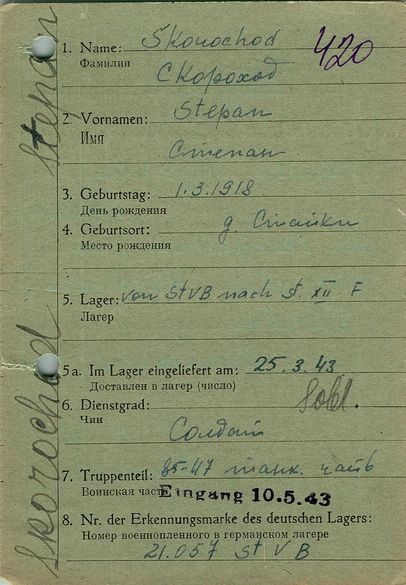 Skorochod Stepan
420
1. Name: Skorochod
Фамилия
Скороход
2. Vornamen: Stepan
Имя
Степан
3. Geburtstag: 1.3.1918
День рождения
4. Geburtsort: д. Стайки
Место рождения
5. Lager: von St VB nach St. XII F
Лагер
5a. Im Lager eingeliefert am: 25.3.43
Доставлен в лагер (число)
6. Dienstgrad: Sold.
Чин
Солдат
7. Truppenteil: 85-47 танк. часть
Воинская часть
Eingang 10.5.43
8. Nr. der Erkennungsmarke des deutschen Lagers:
Номер военнопленного в германском лагере
21.057 St V B